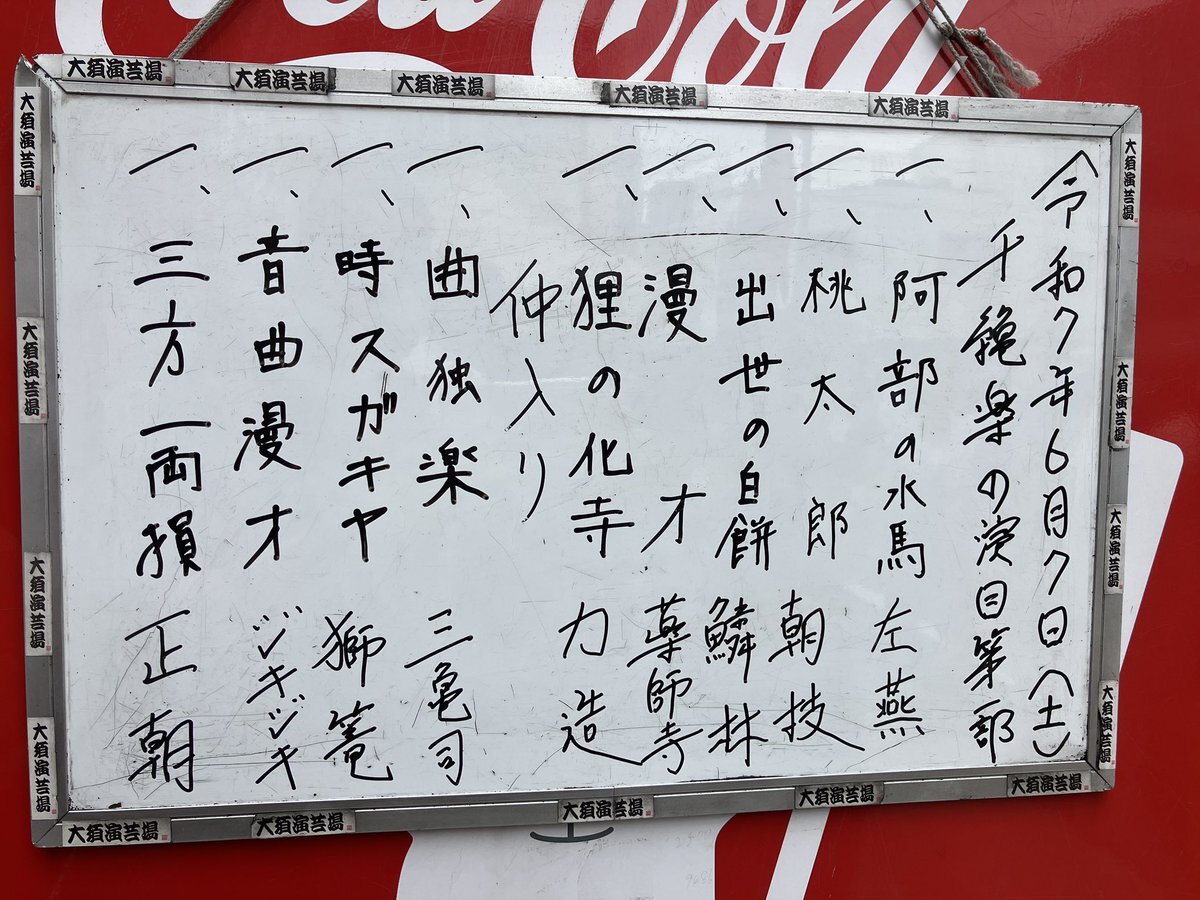 Coca-Cola
大須演芸場
大須演芸場
大須演芸場
大須演芸場
大須演芸場
令和7年6月7日(土)
千穐楽の演目第一部
一、阿部の水馬 左燕
一、桃太郎 朝枝
一、出世の白餅 鱗林
一、漫才 薬師寺
一、狸の化寺 力造
仲入り
一、曲独楽 三亀司
一、時スガキヤ 獅篭
一、音曲漫才 ジキジキ
一、三方一両損 正朝
大須演芸場
大須演芸場
大須演芸場
大須演芸場
大須演芸場
大須演芸場
大須演芸場
大須演芸場
大須演芸場
大須演芸場
大須演芸場
大須演芸場
大須演芸場